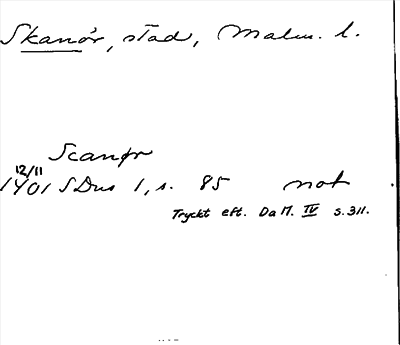 Skanör, stad, Malm. l.
Scanør
12/11
1401 SDns 1, s. 85 not
Tryckt eft. Da M. IV s. 311.